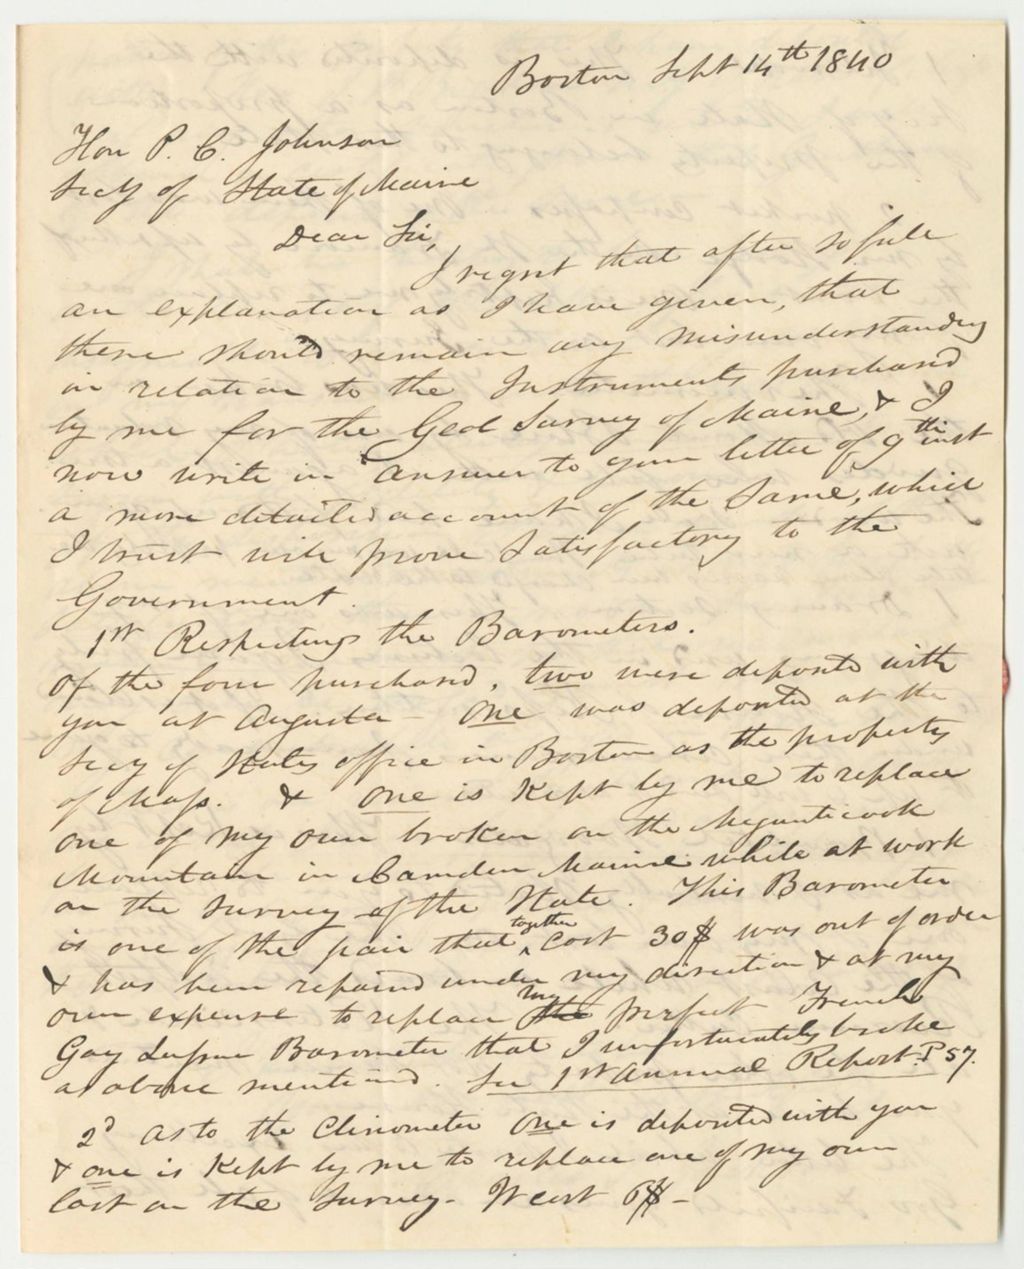 Boston Sept 14th 1840
Hon P. C. Johnson
Secy of State of Maine
Dear Sir,
I regret that after so full
an explanation as I have given, that
there should remain any misunderstanding
in relation to the Instruments purchased
by me for the Geol Survey of Maine, & I
now write in answer to your letter of 9th inst
a more detailed account of the Same, which
I trust will prove Satisfactory to the
Government.
1st Respecting the Barometers.
Of the four purchased, two were deposited with
you at Augusta - One was deposited at the
Secy of States office in Boston as the property
of Mass. & one is Kept by me to replace
one of my own broken on the Megunticook
Mountain in Camden Maine while at work
on the Survey of the State. This Barometer
is one of the pair that together cost 30$ was out of order
& has been repaired under my direction & at my
own expense to replace the my perfect French
Gay Lussac Barometer that I unfortunately broke
as above mentioned. See 1st Annual Report. P 57.
2d As to the Clinometer One is deposited with you
& one is Kept by me to replace one of my own
lost on the Survey - It cost 6$ -